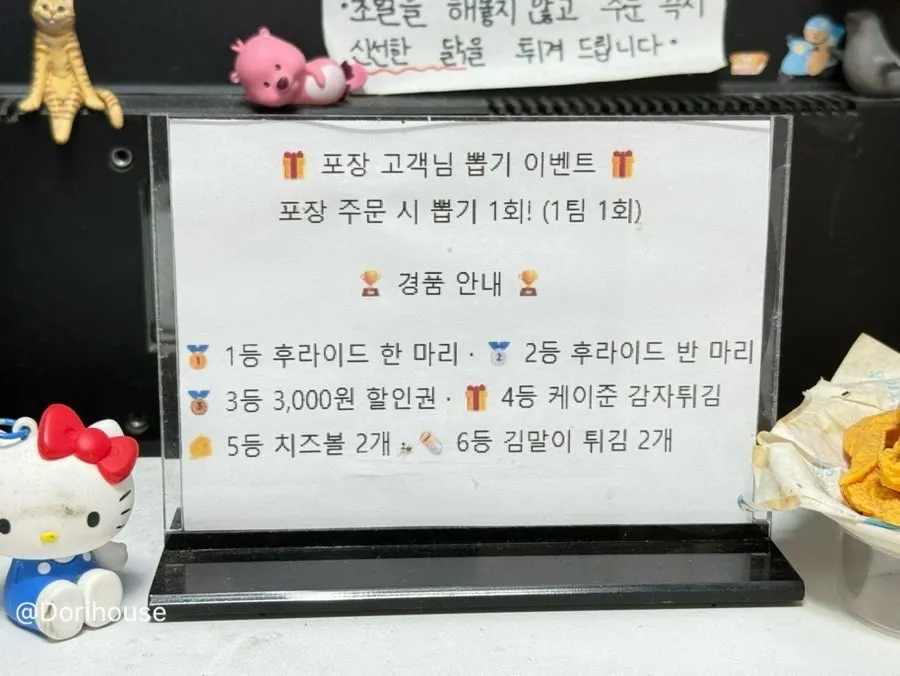 ·초벌을 해놓지 않고 주문 즉시
신선한 닭을 튀겨 드립니다·
🎁 포장 고객님 뽑기 이벤트 🎁
포장 주문 시 뽑기 1회! (1팀 1회)
🏆 경품 안내 🏆
🥇 1등 후라이드 한 마리 · 🥈 2등 후라이드 반 마리
🥉 3등 3,000원 할인권 · 🎁 4등 케이준 감자튀김
5등 치즈볼 2개 6등 김말이 튀김 2개
@Dorihouse